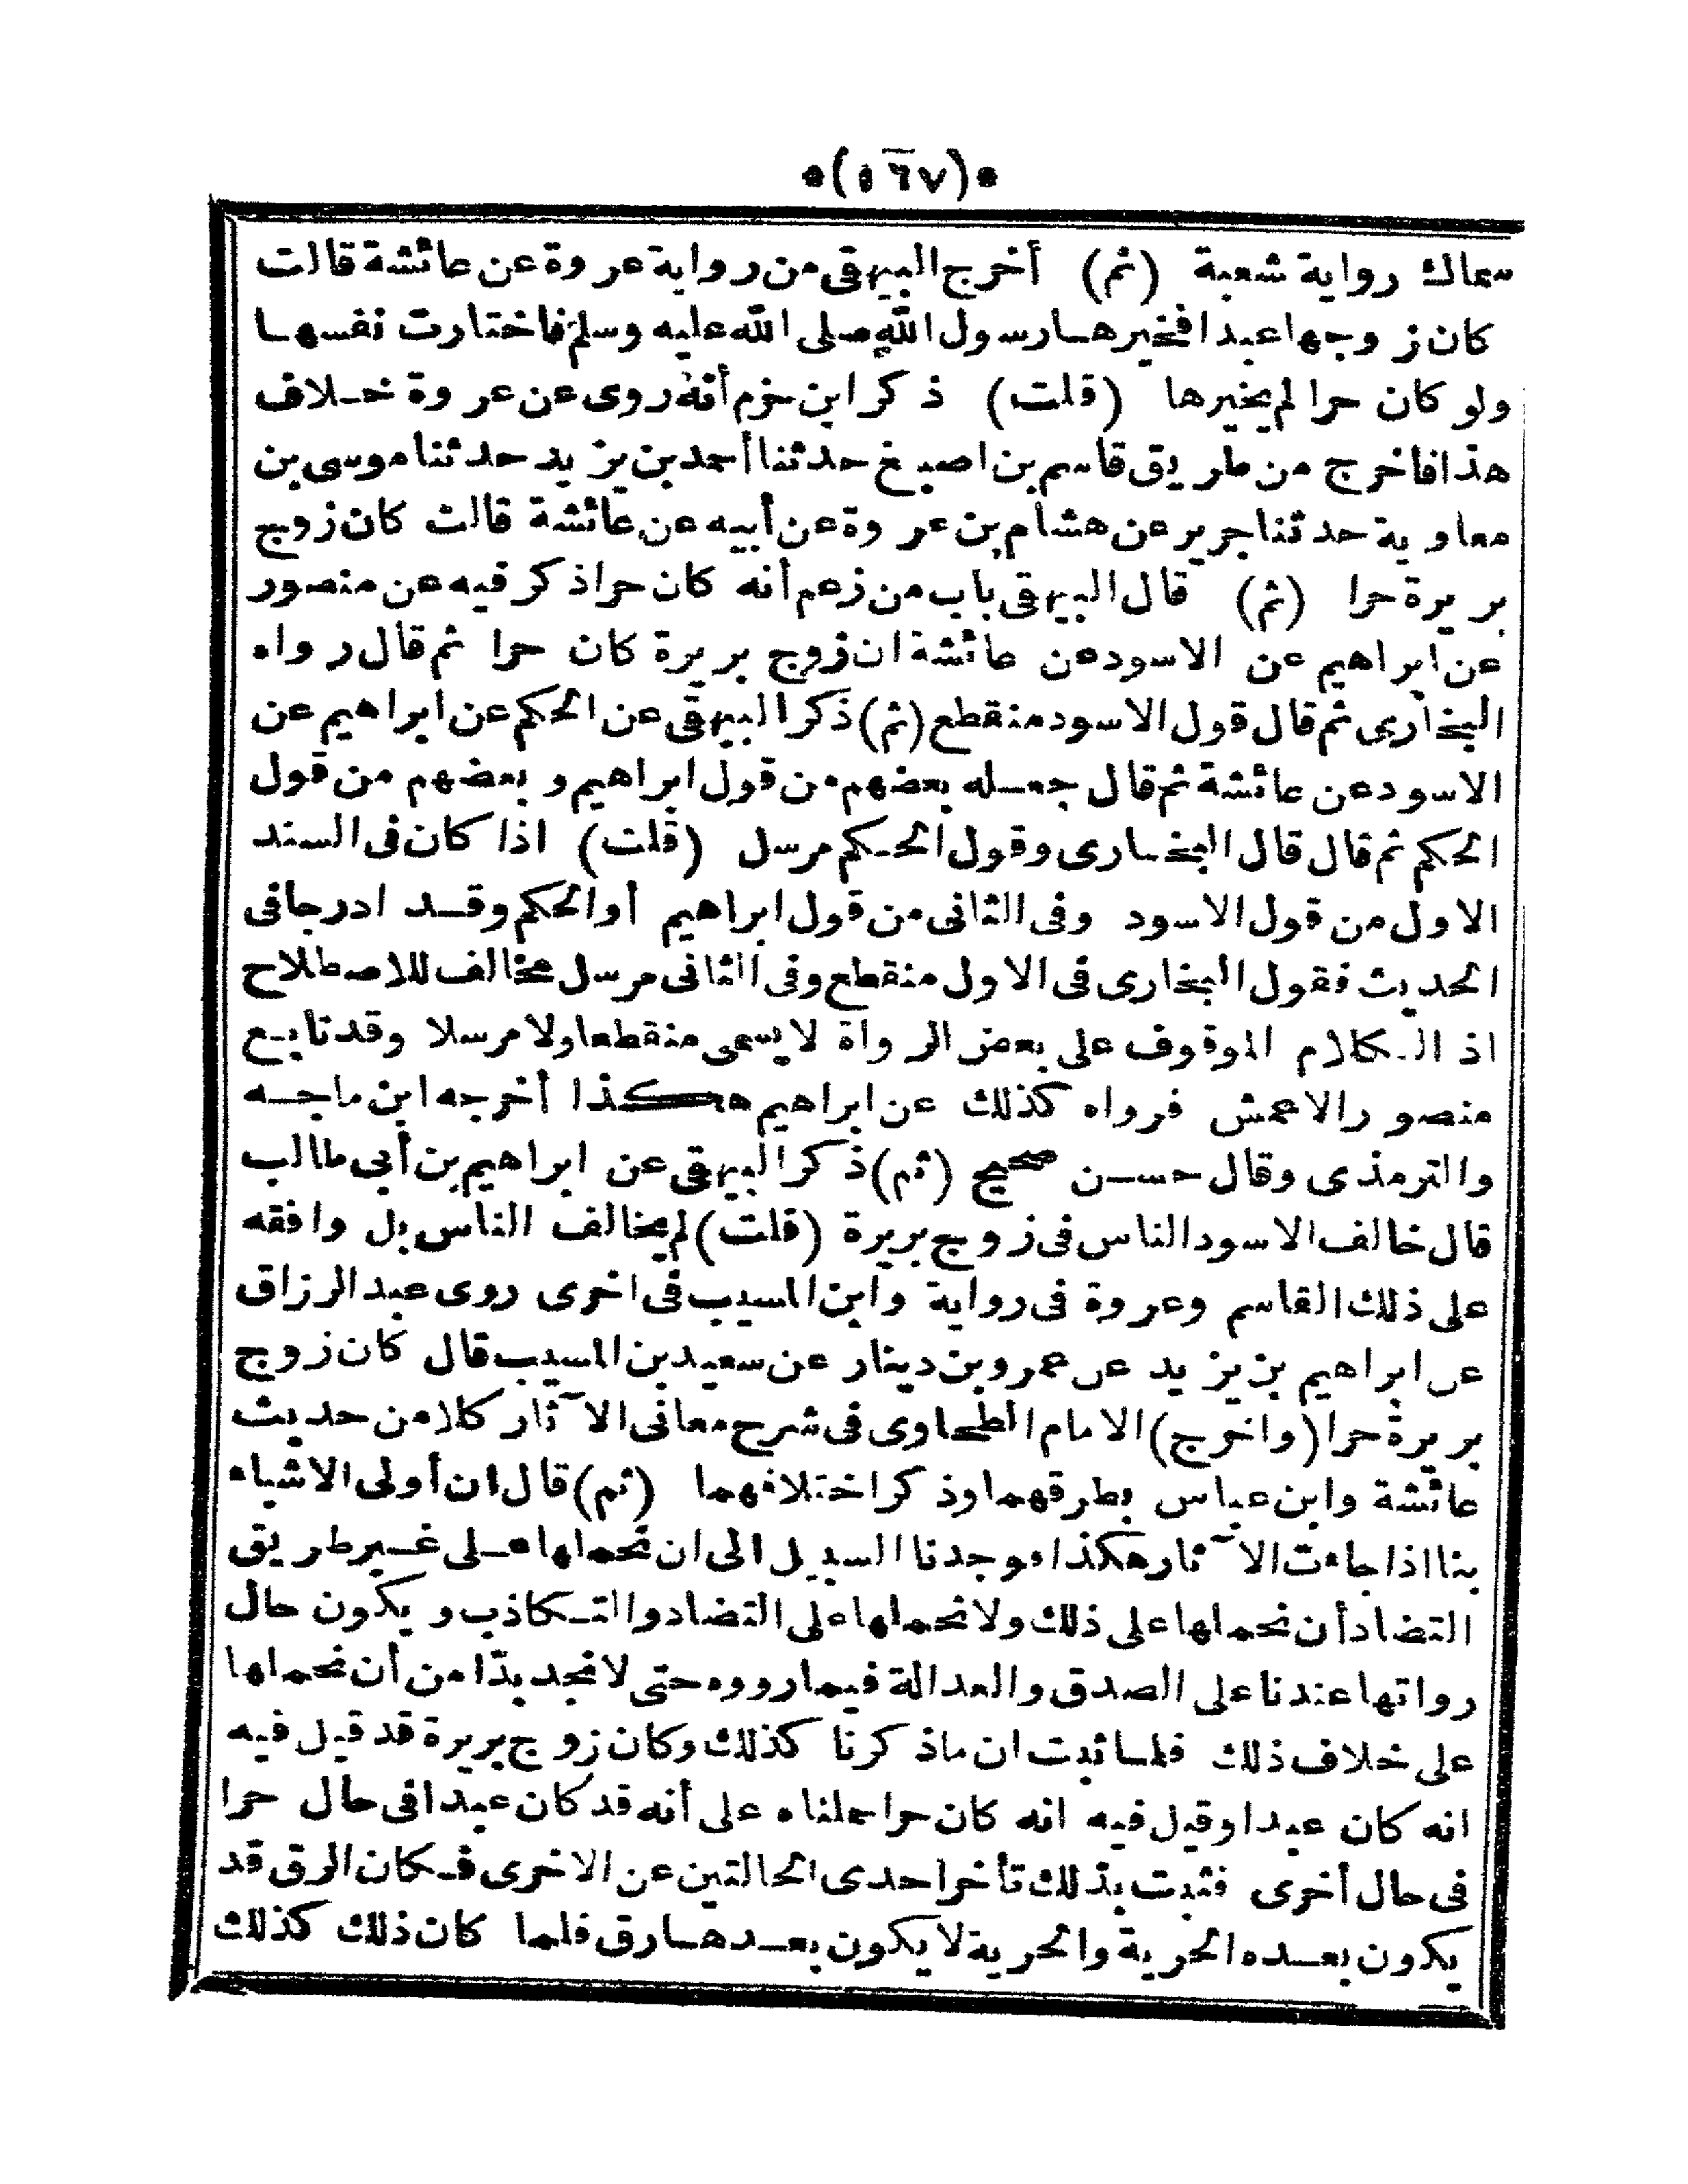 *(١٦٧)*
سماك رواية شعبة (ثم) أخرج البيهقى من رواية عروة عن عائشة قالت
كان زوجها عبدا فخيرها رسول الله صلى الله عليه وسلم فاختارت نفسها
ولو كان حرا لم يخيرها (قلت) ذكر ابن حزم أنه روى عن عروة خلاف
هذا فاخرج من طريق قاسم بن اصبغ حدثنا أحمد بن يزيد حدثنا موسى بن
معاوية حدثنا جرير عن هشام بن عروة عن أبيه عن عائشة قالت كان زوج
بريرة حرا (ثم) قال البيهقى باب من زعم أنه كان حرا ذكر فيه عن منصور
عن ابراهيم عن الاسود عن عائشة ان زوج بريرة كان حرا ثم قال رواه
البخارى ثم قال قول الاسود منقطع (ثم) ذكر البيهقى عن الحكم عن ابراهيم عن
الاسود عن عائشة ثم قال جعله بعضهم من قول ابراهيم وبعضهم من قول
الحكم ثم قال قال البخارى وقول الحكم مرسل (قلت) اذا كان فى السند
الاول من قول الاسود وفى الثانى من قول ابراهيم أو الحكم وقد ادرجا فى
الحديث فقول البخارى فى الاول منقطع وفى الثانى مرسل مخالف للاصطلاح
اذ الكلام الموقوف على بعض الرواة لا يسمى منقطعا ولا مرسلا وقد تابع
منصور الاعمش فرواه كذلك عن ابراهيم هكذا أخرجه ابن ماجه
والترمذى وقال حسن صحيح (ثم) ذكر البيهقى عن ابراهيم بن أبى طالب
قال خالف الاسود الناس فى زوج بريرة (قلت) لم يخالف الناس بل وافقه
على ذلك القاسم وعروة فى رواية وابن المسيب فى اخرى روى عبد الرزاق
عن ابراهيم بن يزيد عن عمرو بن دينار عن سعيد بن المسيب قال كان زوج
بريرة حرا (واخرج) الامام الطحاوى فى شرح معانى الآثار كلا من حديث
عائشة وابن عباس بطرقهما وذكر اختلافهما (ثم) قال ان أولى الاشياء
بنا اذا جاءت الآثار هكذا فوجدنا السبيل الى ان نحملها على غير طريق
التضاد أن نحملها على ذلك ولا نحملها على التضاد والتكاذب ويكون حال
رواتها عندنا على الصدق والعدالة فيما رووه حتى لا نجد بدّا من أن نحملها
على خلاف ذلك فلما ثبت ان ما ذكرنا كذلك وكان زوج بريرة قد قيل فيه
انه كان عبدا وقيل فيه انه كان حرا حملناه على أنه قد كان عبدا فى حال حرا
فى حال أخرى فثبت بذلك تأخر احدى الحالتين عن الاخرى فكان الرق قد
يكون بعده الحرية والحرية لا يكون بعدها رق فلما كان ذلك كذلك